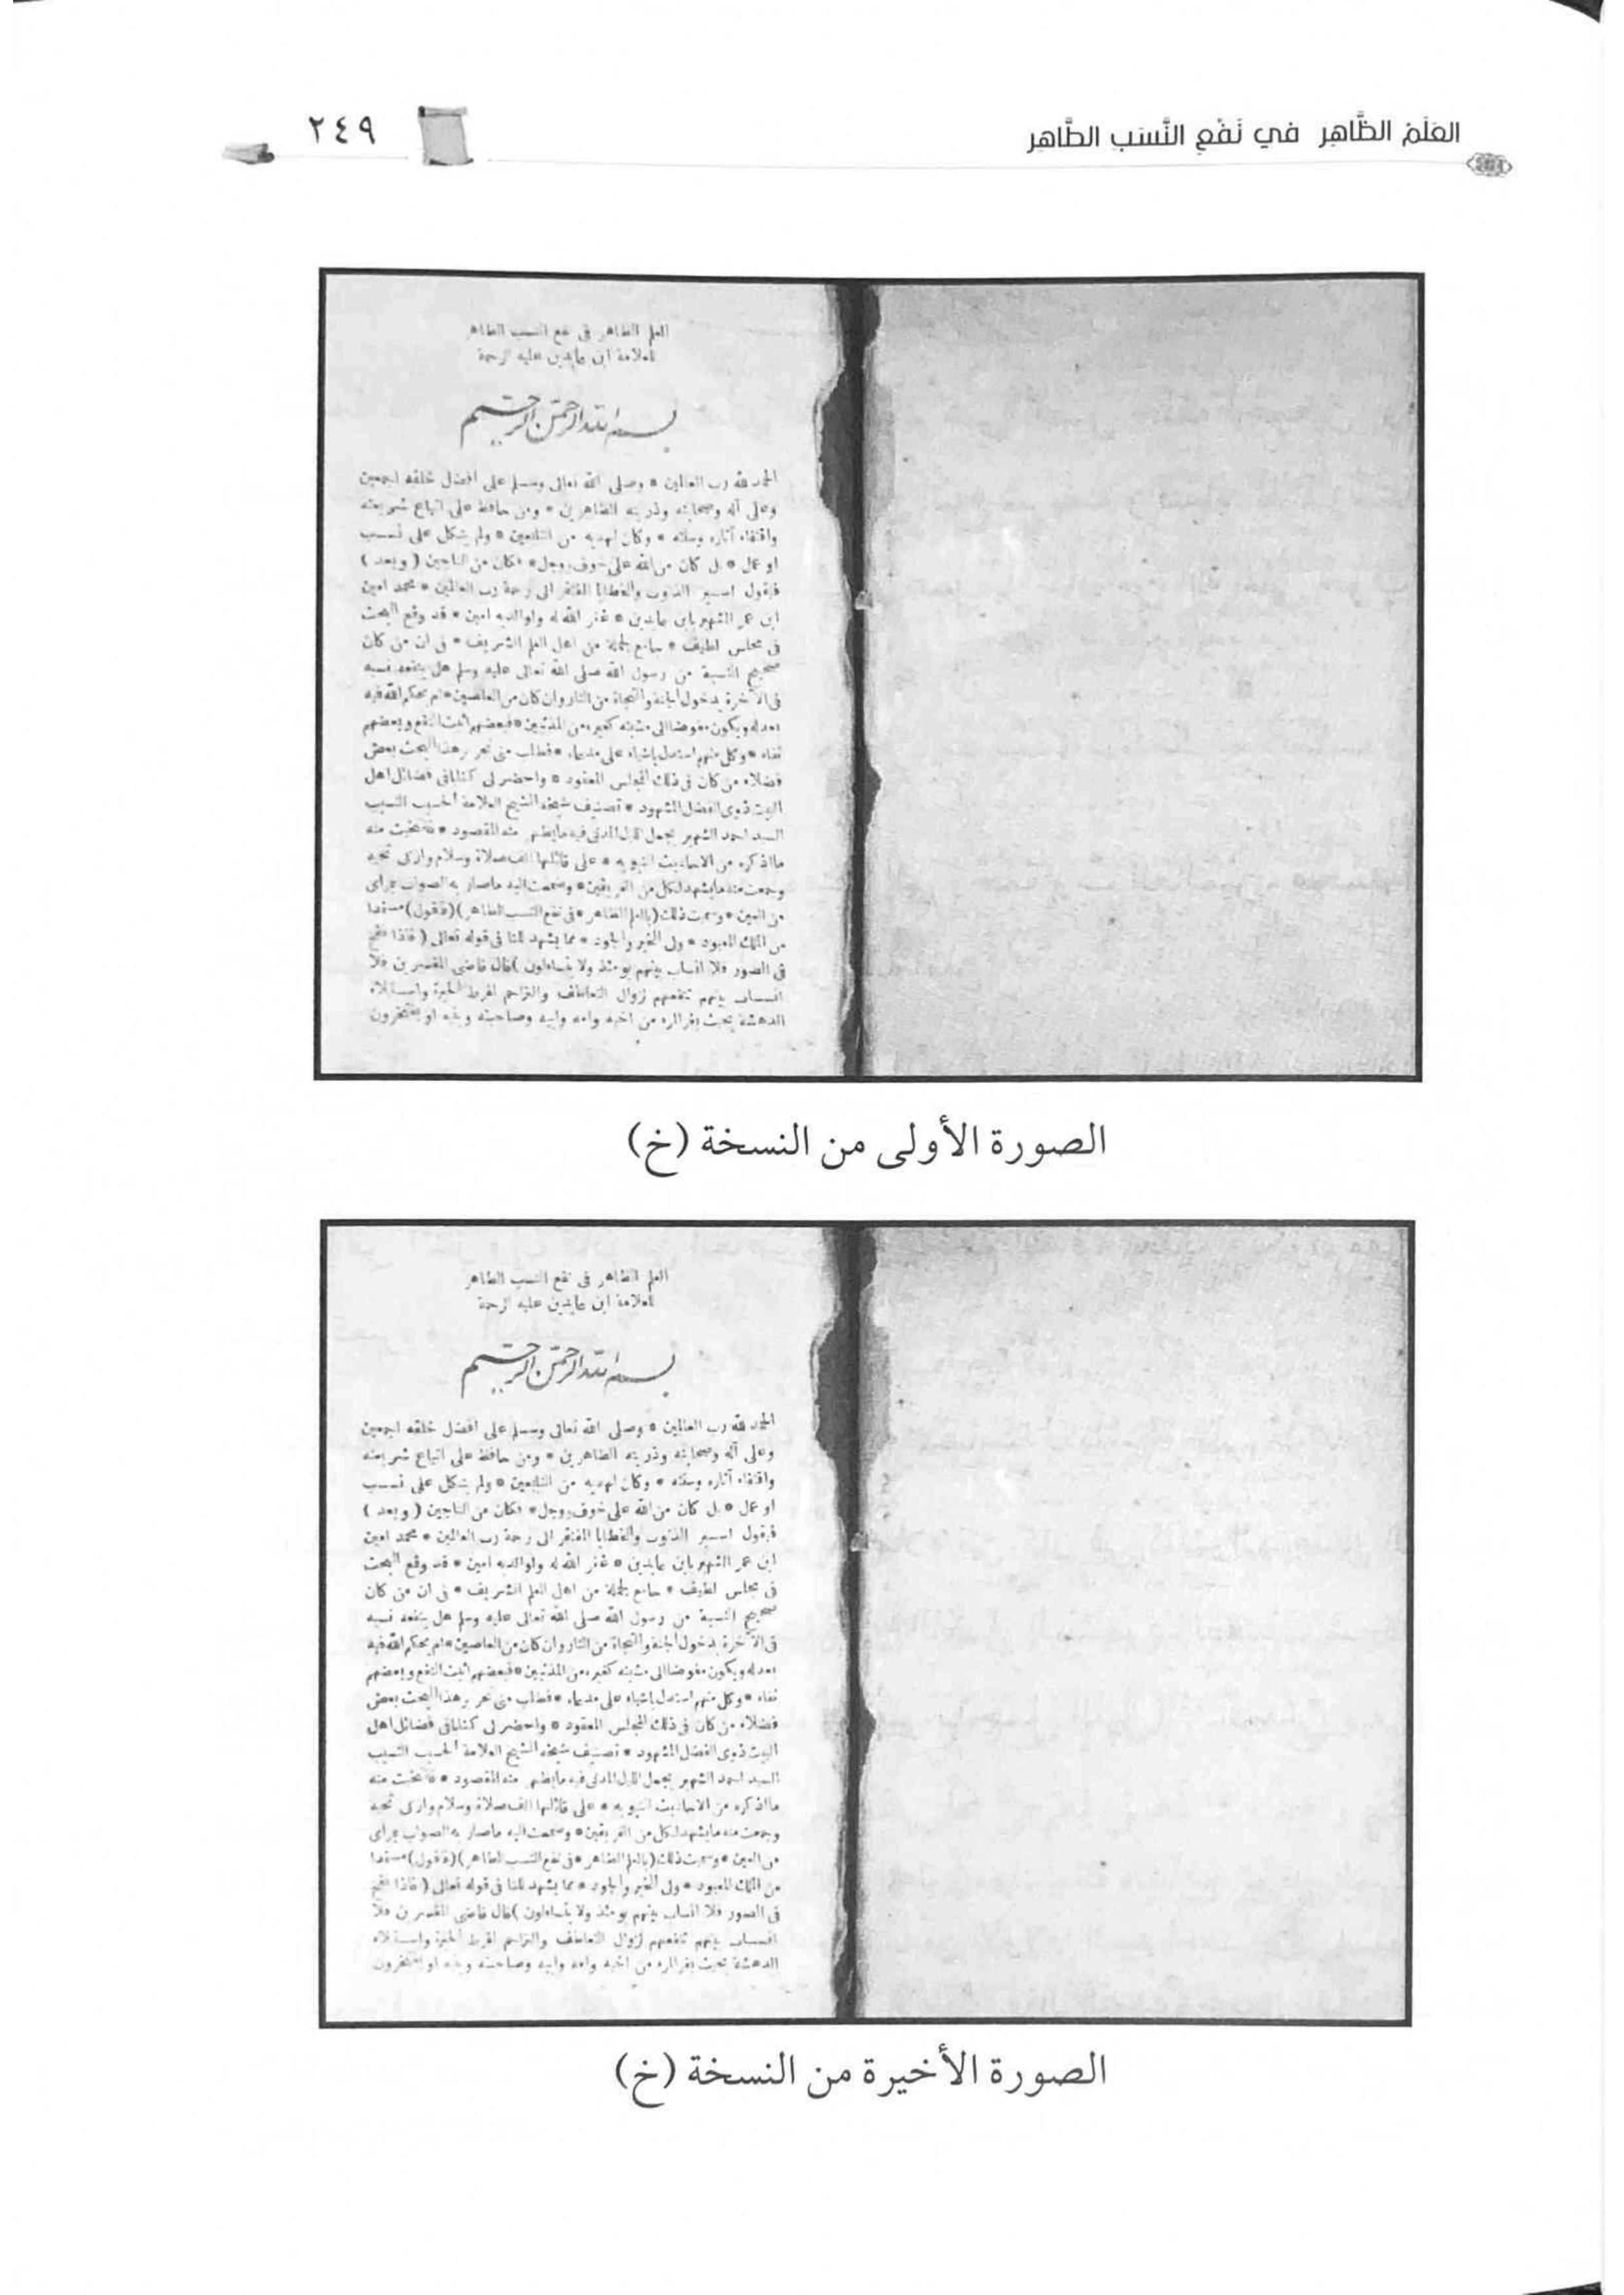 العَلَمُ الظَّاهِر في نَفْعِ النَّسَبِ الطَّاهِر
٢٤٩
العلم الظاهر فى نفع النسب الطاهر
للعلامة ابن عابدين عليه الرحمة
بسم الله الرحمن الرحيم
الحمد لله رب العالمين * وصلى الله تعالى وسلم على افضل خلقه اجمعين
وعلى آله وصحابته وذريته الطاهرين * ومن حافظ على اتباع شريعته
واقتفاء آثاره وسنته * وكان لهديه من التابعين * ولم يتكل على نسب
او عمل * بل كان من الله على خوف ووجل * فكان من الناجين ( وبعد )
فيقول اسير الذنوب والخطايا المفتقر الى رحمة رب العالمين * محمد امين
ابن عمر الشهير بابن عابدين * غفر الله له ولوالديه امين * قد وقع البحث
فى مجلس لطيف * جامع لجملة من اهل العلم الشريف * فى ان من كان
صحيح النسبة من رسول الله صلى الله تعالى عليه وسلم هل ينفعه نسبه
فى الآخرة بدخول الجنة والنجاة من النار وان كان من العاصين * ام يحكم الله فيه
بعدله ويكون مفوضا الى مشيئته كغيره من المذنبين * فبعضهم اثبت النفع وبعضهم
نفاه * وكل منهم استدل باشياء على مدعاه * فطلب منى تحرير هذا البحث بعض
فضلاء من كان فى ذلك المجلس المعقود * واحضر لى كتابا فى فضائل اهل
البيت ذوى الفضل المشهود * تصنيف شيخه الشيخ العلامة الحسيب النسيب
السيد احمد الشهير بجمل الليل المدنى فيه ما يظهر منه المقصود * فانتخبت منه
ما اذكره من الاحاديث النبويه * على قائلها الف صلاة وسلام وازكى تحيه
وجمعت منه ما يشهد لكل من الفريقين * وضممت اليه ما صار به الصواب برأى
من العين * وسميت ذلك (بالعلم الظاهر * فى نفع النسب الطاهر) (فاقول) مستمدا
من الملك المعبود * ولى الخير والجود * مما يشهد لنا فى قوله تعالى ( فاذا نفخ
فى الصور فلا انساب بينهم يومئذ ولا يتساءلون ) قال قاضى المفسرين فلا
انساب بينهم تنفعهم لزوال التعاطف والتراحم لفرط الحيرة واستيلاء
الدهشة بحيث يفر المرء من اخيه وامه وابيه وصاحبته وبنيه او يفتخرون
الصورة الأولى من النسخة (خ)
العلم الظاهر فى نفع النسب الطاهر
للعلامة ابن عابدين عليه الرحمة
بسم الله الرحمن الرحيم
الحمد لله رب العالمين * وصلى الله تعالى وسلم على افضل خلقه اجمعين
وعلى آله وصحابته وذريته الطاهرين * ومن حافظ على اتباع شريعته
واقتفاء آثاره وسنته * وكان لهديه من التابعين * ولم يتكل على نسب
او عمل * بل كان من الله على خوف ووجل * فكان من الناجين ( وبعد )
فيقول اسير الذنوب والخطايا المفتقر الى رحمة رب العالمين * محمد امين
ابن عمر الشهير بابن عابدين * غفر الله له ولوالديه امين * قد وقع البحث
فى مجلس لطيف * جامع لجملة من اهل العلم الشريف * فى ان من كان
صحيح النسبة من رسول الله صلى الله تعالى عليه وسلم هل ينفعه نسبه
فى الآخرة بدخول الجنة والنجاة من النار وان كان من العاصين * ام يحكم الله فيه
بعدله ويكون مفوضا الى مشيئته كغيره من المذنبين * فبعضهم اثبت النفع وبعضهم
نفاه * وكل منهم استدل باشياء على مدعاه * فطلب منى تحرير هذا البحث بعض
فضلاء من كان فى ذلك المجلس المعقود * واحضر لى كتابا فى فضائل اهل
البيت ذوى الفضل المشهود * تصنيف شيخه الشيخ العلامة الحسيب النسيب
السيد احمد الشهير بجمل الليل المدنى فيه ما يظهر منه المقصود * فانتخبت منه
ما اذكره من الاحاديث النبويه * على قائلها الف صلاة وسلام وازكى تحيه
وجمعت منه ما يشهد لكل من الفريقين * وضممت اليه ما صار به الصواب برأى
من العين * وسميت ذلك (بالعلم الظاهر * فى نفع النسب الطاهر) (فاقول) مستمدا
من الملك المعبود * ولى الخير والجود * مما يشهد لنا فى قوله تعالى ( فاذا نفخ
فى الصور فلا انساب بينهم يومئذ ولا يتساءلون ) قال قاضى المفسرين فلا
انساب بينهم تنفعهم لزوال التعاطف والتراحم لفرط الحيرة واستيلاء
الدهشة بحيث يفر المرء من اخيه وامه وابيه وصاحبته وبنيه او يفتخرون
الصورة الأخيرة من النسخة (خ)